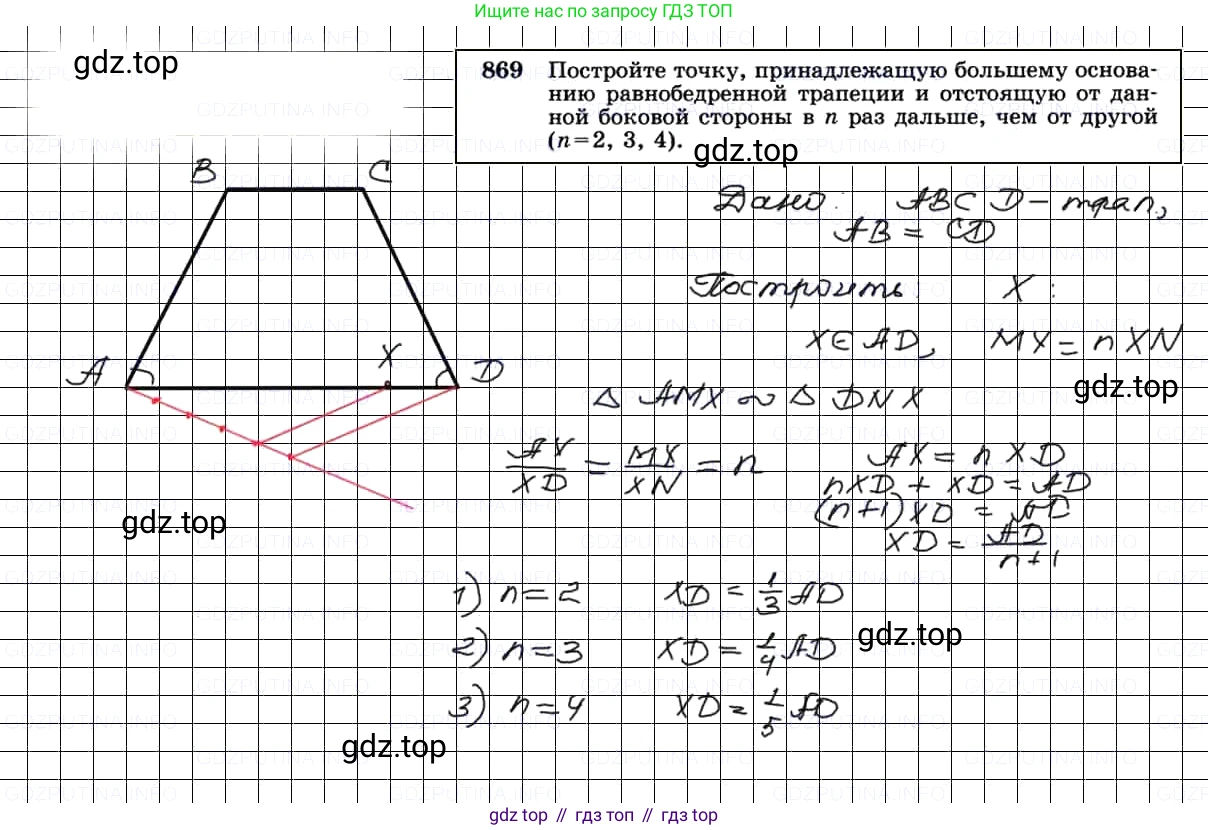 Ищите нас по запросу ГДЗ ТОП
gdz.top
869 Постройте точку, принадлежащую большему основа-
нию равнобедренной трапеции и отстоящую от дан-
ной боковой стороны в n раз дальше, чем от другой
(n=2, 3, 4).
gdz.top
B C
Дано: ABCD - трап.,
AB = CD
Построить: X :
X ∈ AD, MX = n XN
A X D
gdz.top
△ AMX ∾ △ DNX
AX/XD = MX/XN = n
AX = n XD
nXD + XD = AD
(n+1)XD = AD
XD = AD/n+1
gdz.top
1) n=2 XD = 1/3 AD
2) n=3 XD = 1/4 AD
gdz.top
3) n=4 XD = 1/5 AD
gdz.top
gdz top // гдз топ // gdz top